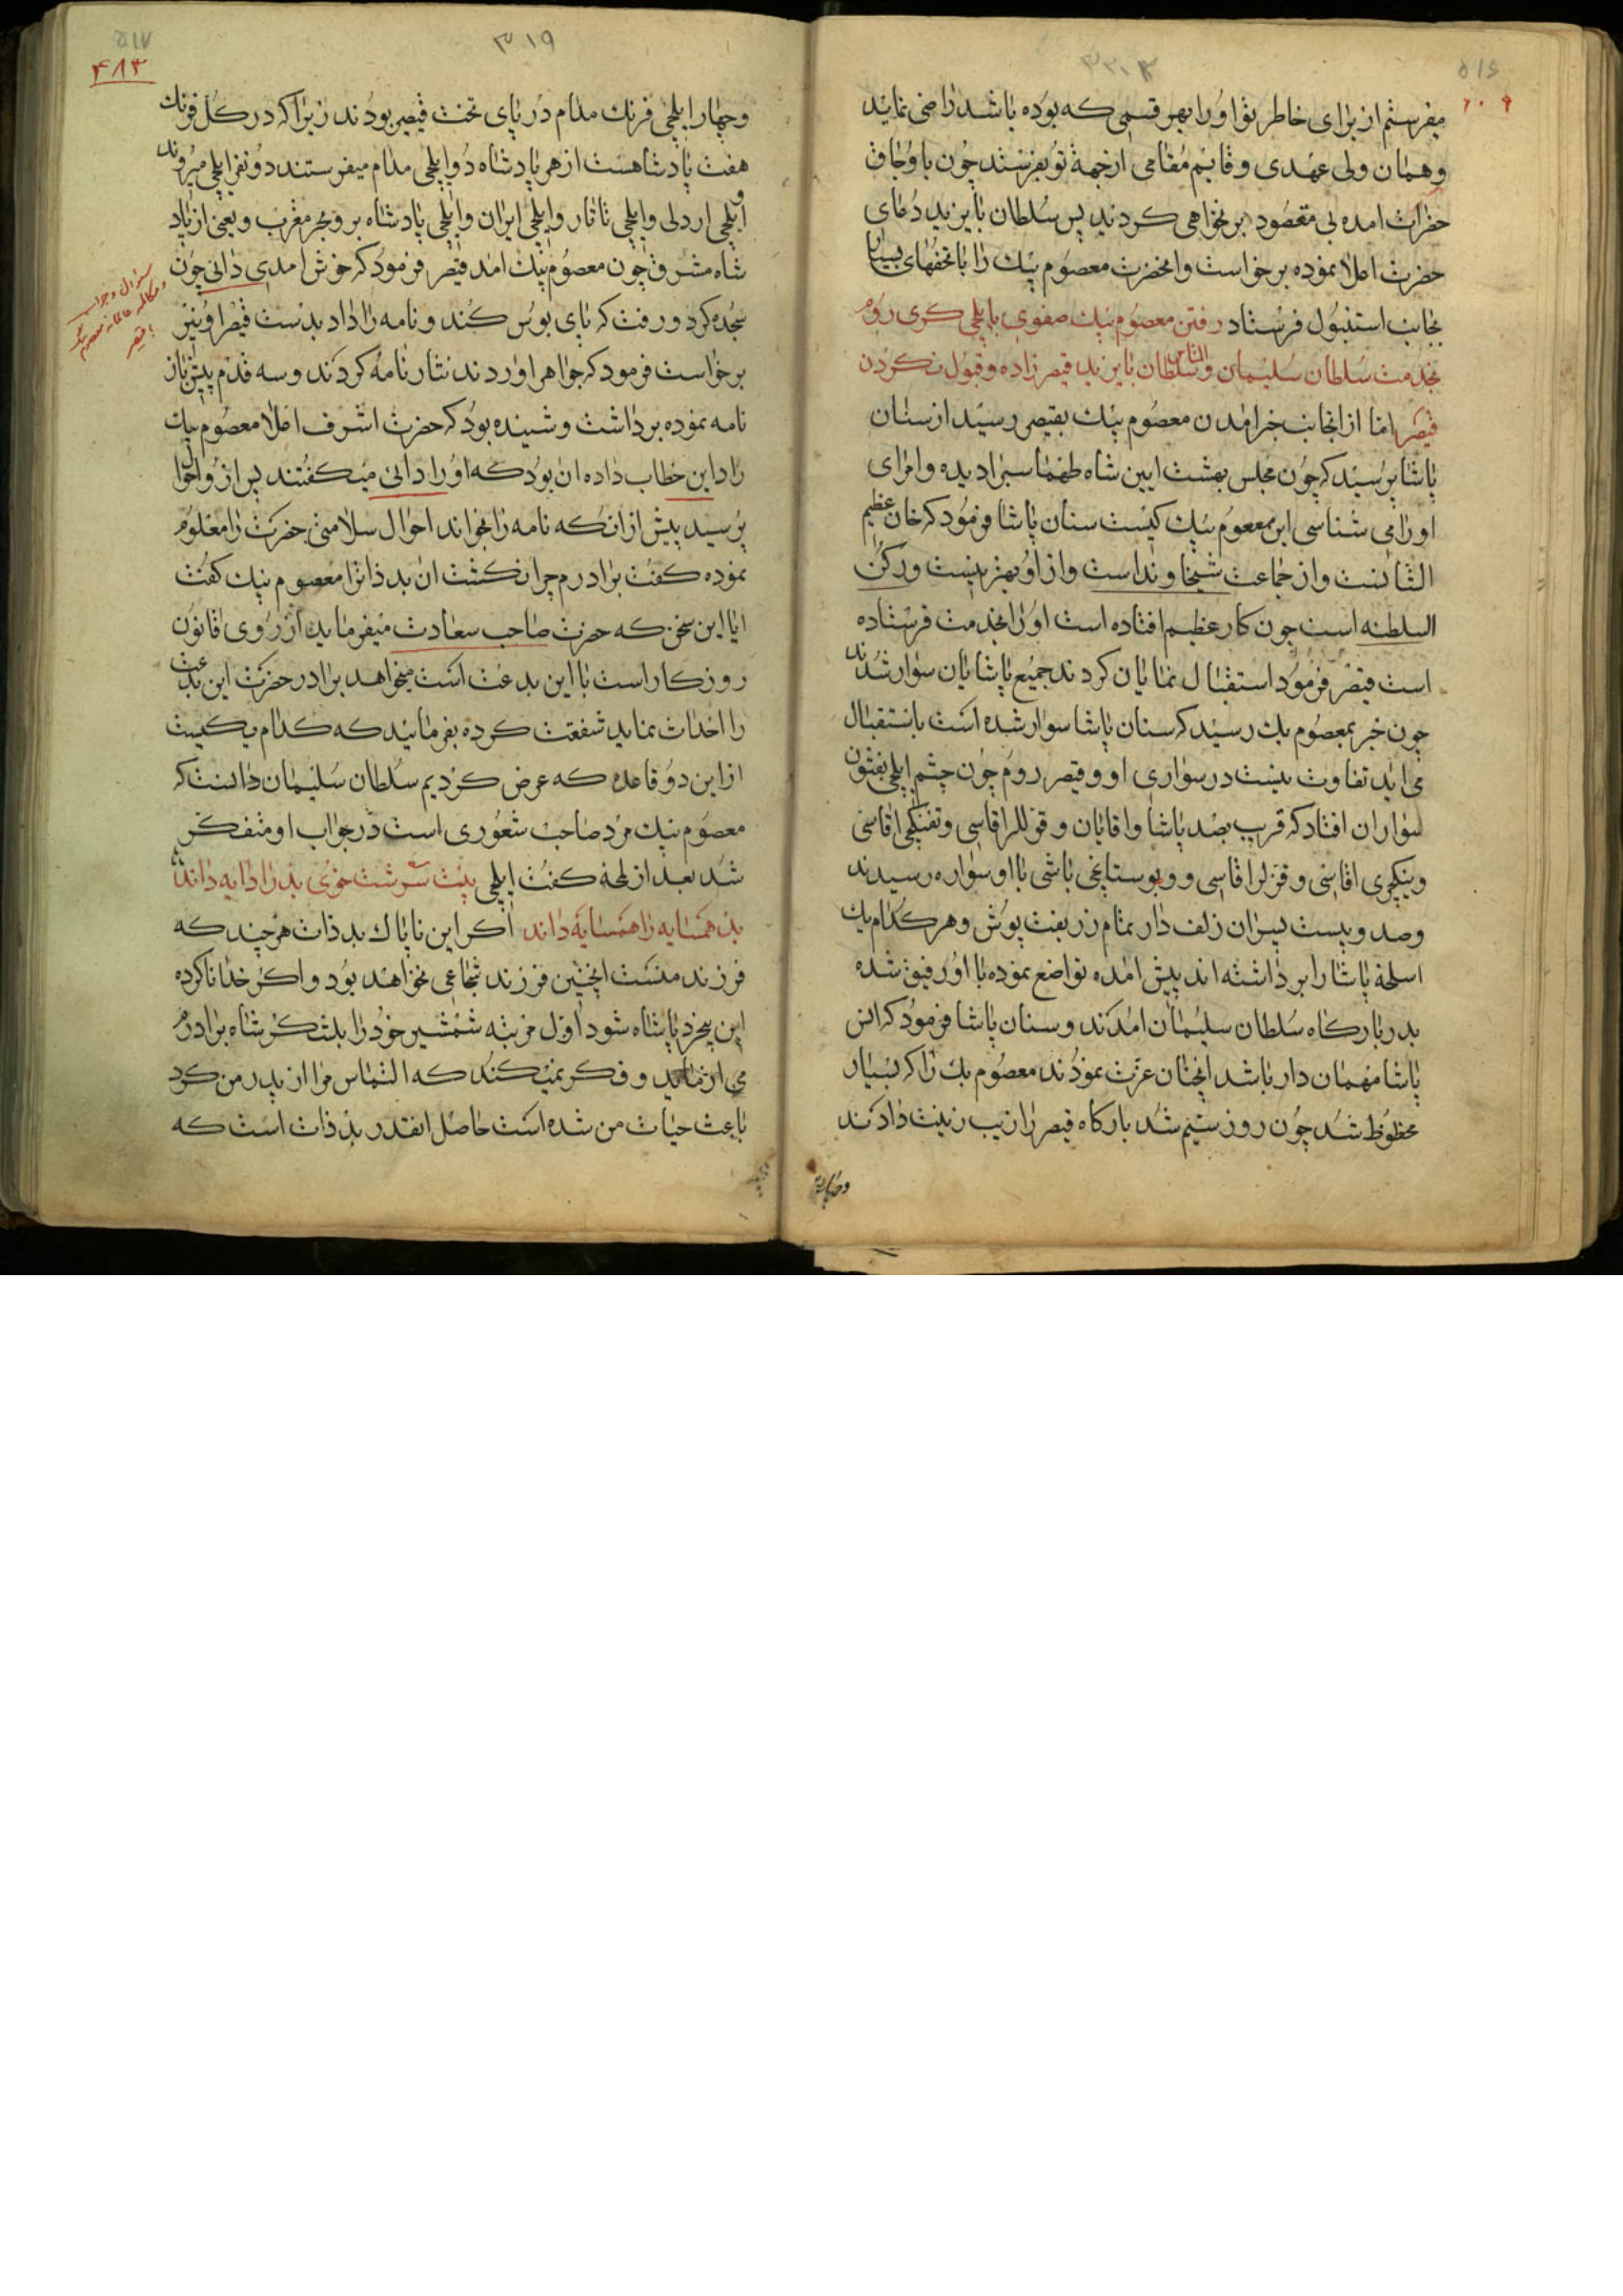 میفرستم از برای خاطر تو او را بهر قسمی که بوده باشد راضی نماید
و همان ولی عهدی و قایم مقامی از جهة تو بفرستند چون با وجاق
حضرات امده بی مقصود بر نخواهی کردند پس سلطان بایزید دعای
حضرت اعلا نموده برخواست و انحضرت معصوم بیک را با تحفهای بسیار
بجانب استنبول فرستاد رفتن معصوم بیک صفوی بایلچی کری روم
بخدمت سلطان سلیمان و التماس سلطان بایزید قیصر زاده و قبول نکردن
قیصر اما از انجانب خبر امدن معصوم بیک بقیصر رسید از سنان
پاشا پرسید که چون مجلس بهشت ایین شاه طهماسب را دیده و امرای
او را می شناسی این معصوم بیک کیست سنان پاشا فرمود که خان عظیم
الشانست و از جماعت شیخاوند است و از او بهتر نیست و رکن
السلطنه است چون کار عظیم افتاده است او را بخدمت فرستاده
است قیصر فرمود استقبال نمایان کردند جمیع پاشایان سوار شدند
چون خبر بمعصوم بیک رسید که سنان پاشا سوار شده است باستقبال
می اید تفاوت نیست در سواری او و قیصر روم چون چشم ایلچی بقشون
سواران افتاد که قریب بصد پاشا و اقایان و قوللر اقاسی و تفنکچی اقاسی
و ینکچری اقاسی و قزلر اقاسی و بوستانچی باشی با او سواره رسیدند
و صد و بیست پسران زلف دار تمام زربفت پوش و هر کدام یک
اسلحه پاشا را برداشته اند پیش امده تواضع نموده با او رفیق شده
بدربارکاه سلطان سلیمان امدند و سنان پاشا فرمود که انس
پاشا مهمان دار باشد انچنان عزت نمودند معصوم بک را که بسیار
محظوظ شد چون روز سیم شد بارکاه قیصر را زیب زینت دادند
۳۱۹
۴۸۳
و چهار ایلچی فرنک مدام در پای تخت قیصر بودند زیرا که در کل فرنک
هفت پادشاهست از هر پادشاه دو ایلچی مدام میفرستند دو نفر ایلچی میروند
و ایلچی اردلی و ایلچی تاتار و ایلچی ایران و ایلچی پادشاه بر و بحر مغرب و یعنی از پاد
شاه مشرق چون معصوم بیک امد قیصر فرمود که خوش امدی دائی چون
سجده کرد و رفت که پای بوس کند و نامه را داد بدست قیصر او نیز
برخواست فرمود که جواهر اوردند نثار نامه کردند و سه قدم پیش باز
نامه نموده برداشت و شنیده بود که حضرت اشرف اعلا معصوم بیک
را داین خطاب داده ان بود که او را دائی میکفتند پس از و احوال
پرسید پیش از انکه نامه را بخواند احوال سلامتی حضرت را معلوم
نموده کفت برادرم چرا نکشت ان بد ذات را معصوم بیک کفت
ایا این سخن که حضرت صاحب سعادت میفرماید از روی قانون
روزکار است با این بدعت است میخواهد برادر حضرت این بدعت
را احداث نماید شفقت کرده بفرمائید که کدام یکیست
از این دو قاعده که عرض کردیم سلطان سلیمان دانست که
معصوم بیک مرد صاحب شعوری است در جواب او متفکر
شد بعد از لمحه کفت ایلچی بیت سرشت خوی بد را دایه داند
بد همسایه را همسایه داند اکر این ناپاک بد ذات هر چند که
فرزند منست انچنین فرزند شجاعی نخواهد بود و اکر خدا ناکرده
این بیخرد پاشاه شود اول مرتبه شمشیر خود را بلشکر شاه برادرم
می ازماید و فکر نمیکند که التماس مرا از پدر من کرد
باعث حیات من شده است حاصل انقدر بد ذات است که